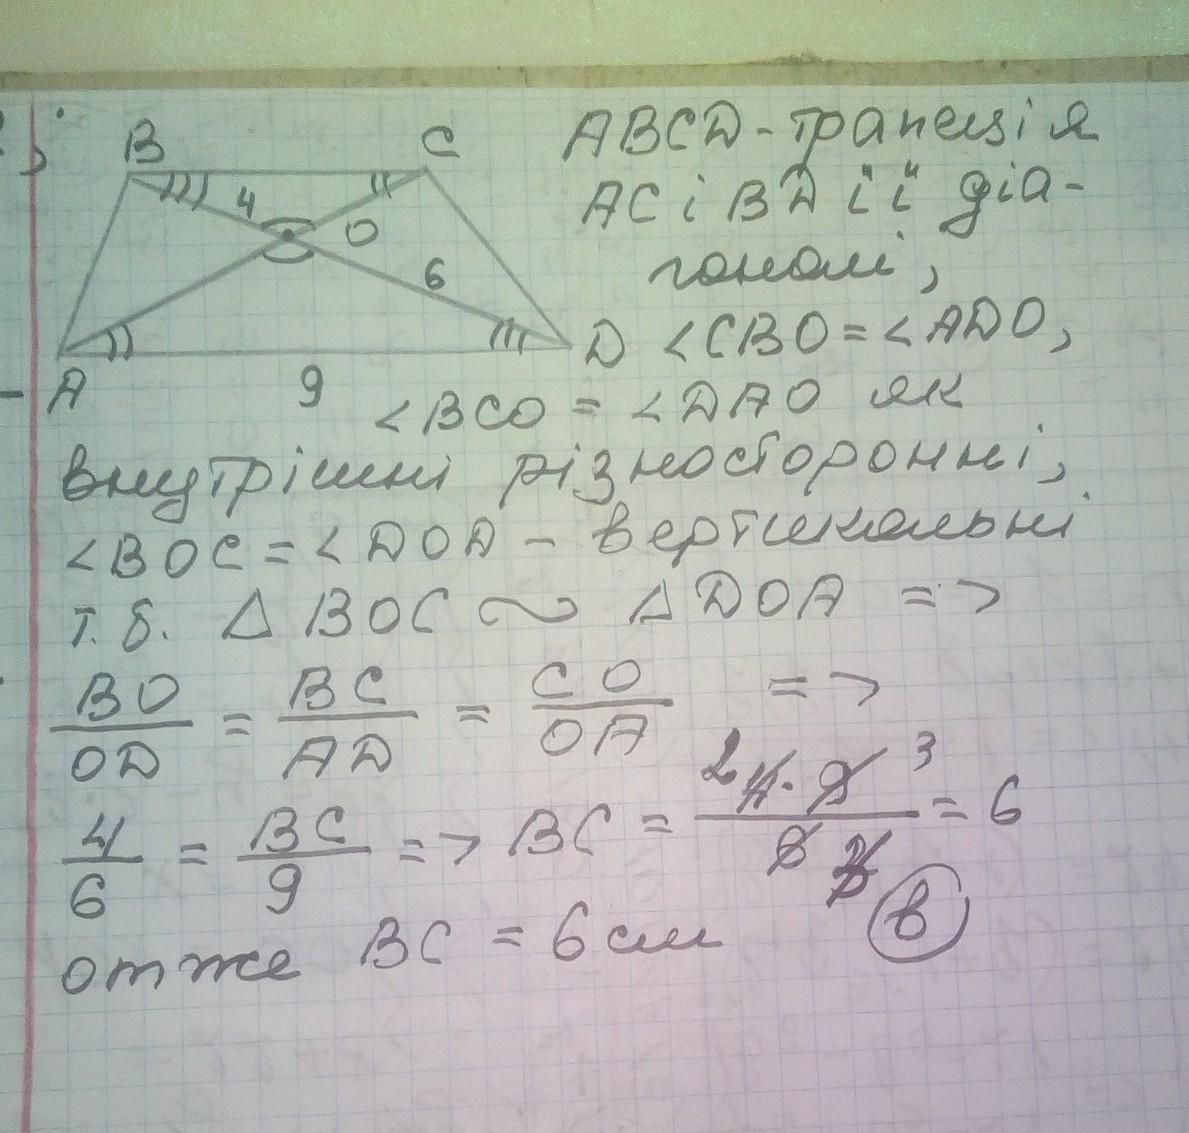 B C
4 O
6
A 9 D
ABCD - трапеція
AC і BD її діа-
гоналі,
<CBO = <ADO,
<BCO = <DAO як
внутрішні різносторонні,
<BOC = <DOD - вертикальні
т.б. △ BOC ∾ △ DOA =>
BO/OD = BC/AD = CO/OA =>
4/6 = BC/9 => BC = 2 4·9 3 / 6 = 6
отже BC = 6 см в